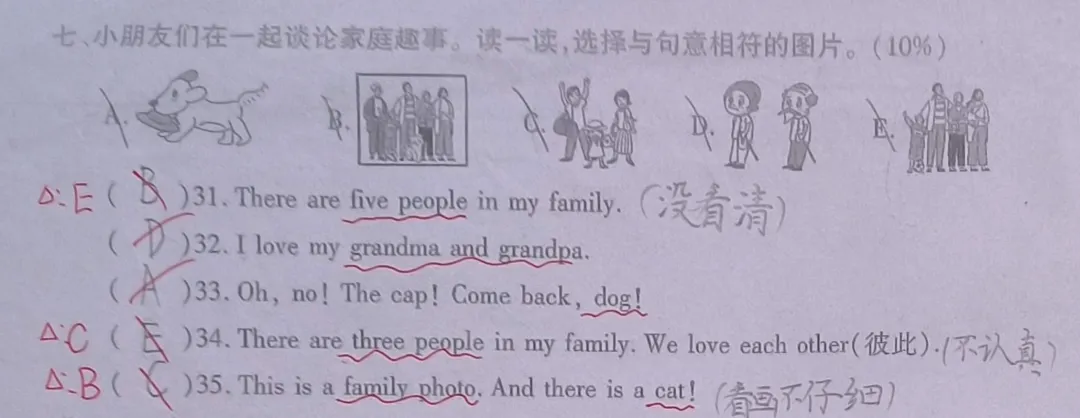 七、小朋友们在一起谈论家庭趣事。读一读,选择与句意相符的图片。(10%)
A. B. C. D. E.
∆:E ( B )31. There are five people in my family. (没看清)
( D )32. I love my grandma and grandpa.
( A )33. Oh, no! The cap! Come back, dog!
∆:C ( E )34. There are three people in my family. We love each other(彼此).(不认真)
∆:B ( C )35. This is a family photo. And there is a cat! (看画不仔细)